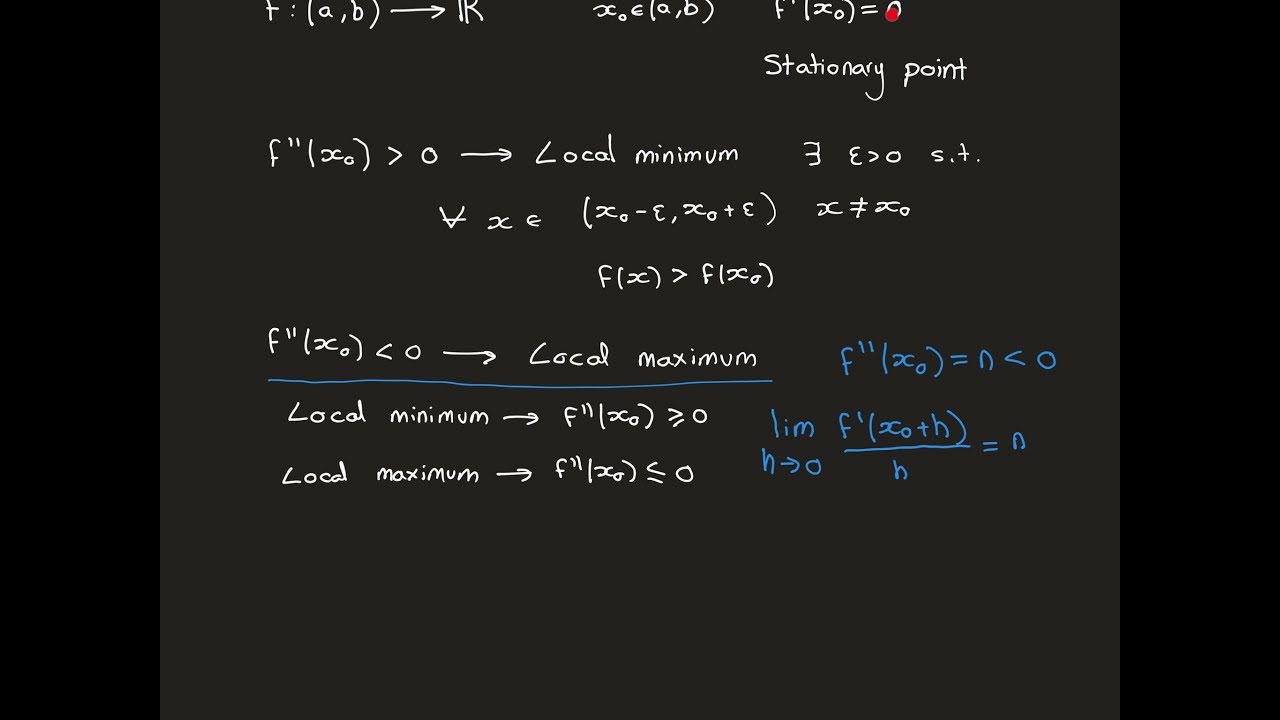 f : (a,b) → ℝ x₀ ∈ (a,b) f'(x₀) = 0
Stationary point
f''(x₀) > 0 → Local minimum ∃ ε>0 s.t.
∀ x ∈ (x₀-ε, x₀+ε) x ≠ x₀
f(x) > f(x₀)
f''(x₀) < 0 → Local maximum
f''(x₀) = n < 0
Local minimum → f''(x₀) ⩾ 0
Local maximum → f''(x₀) ⩽ 0
lim h→0 f'(x₀+h)/h = n